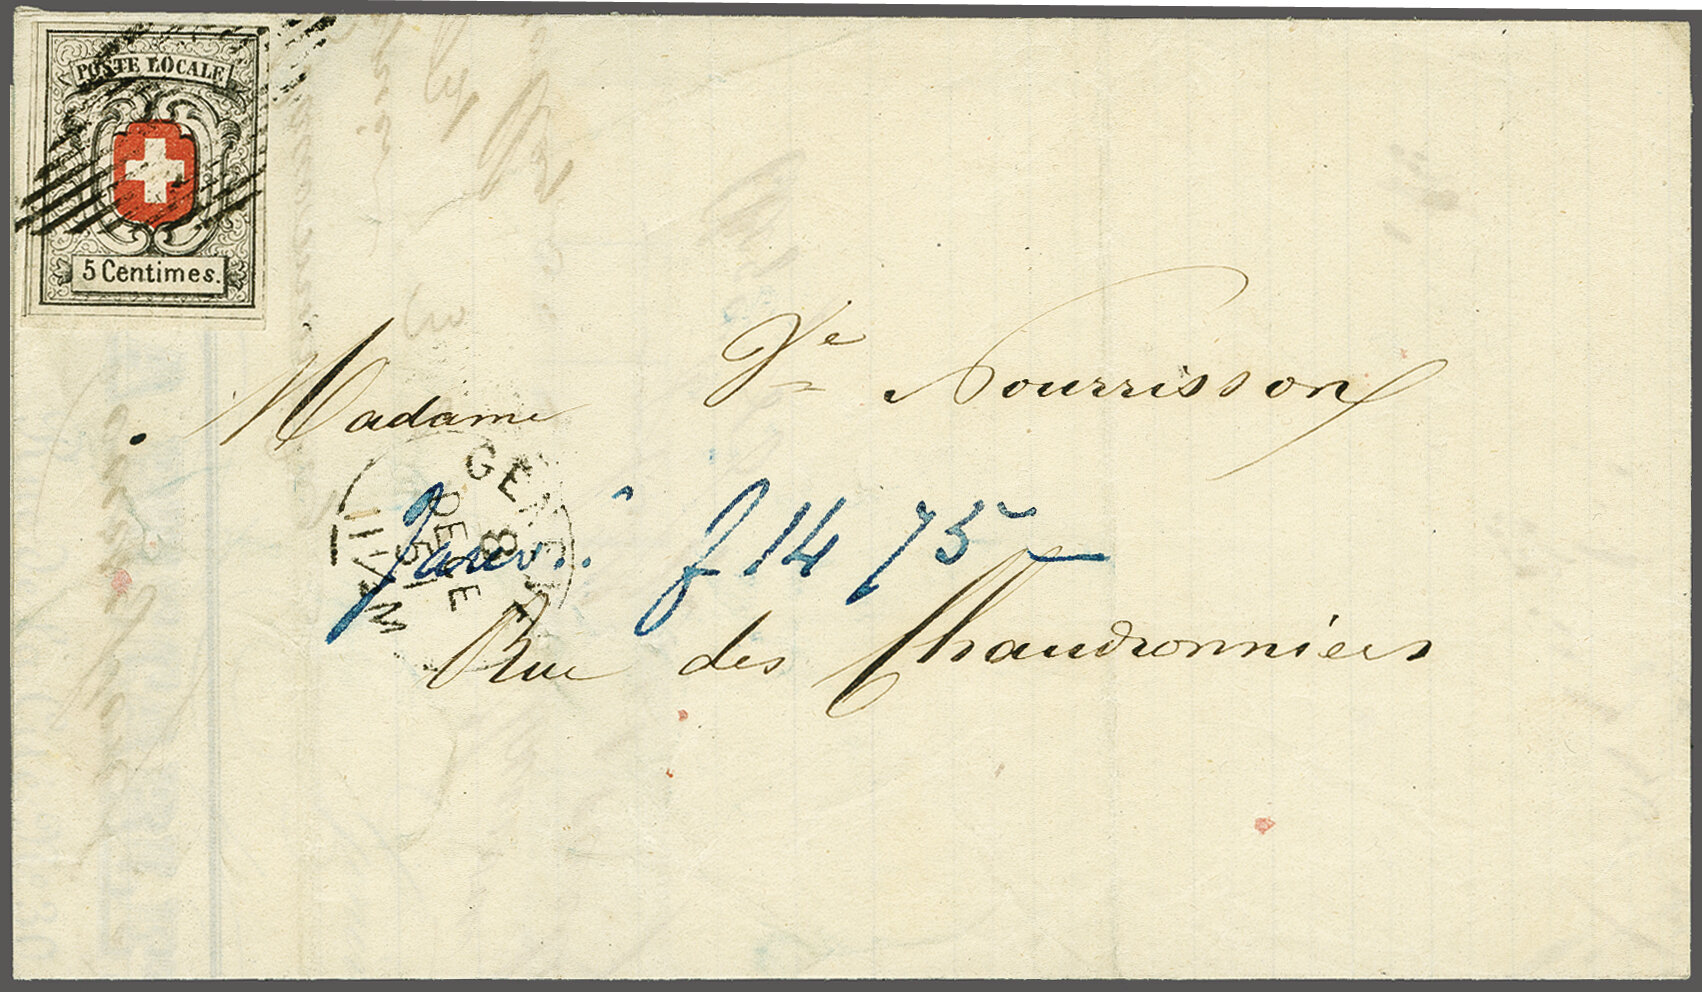 POSTE LOCALE
5 Centimes.
Madame Ve Nourrisson
GENEVE
8
DEC
51
11 M
f 14 75
Rue des Chaudronniers